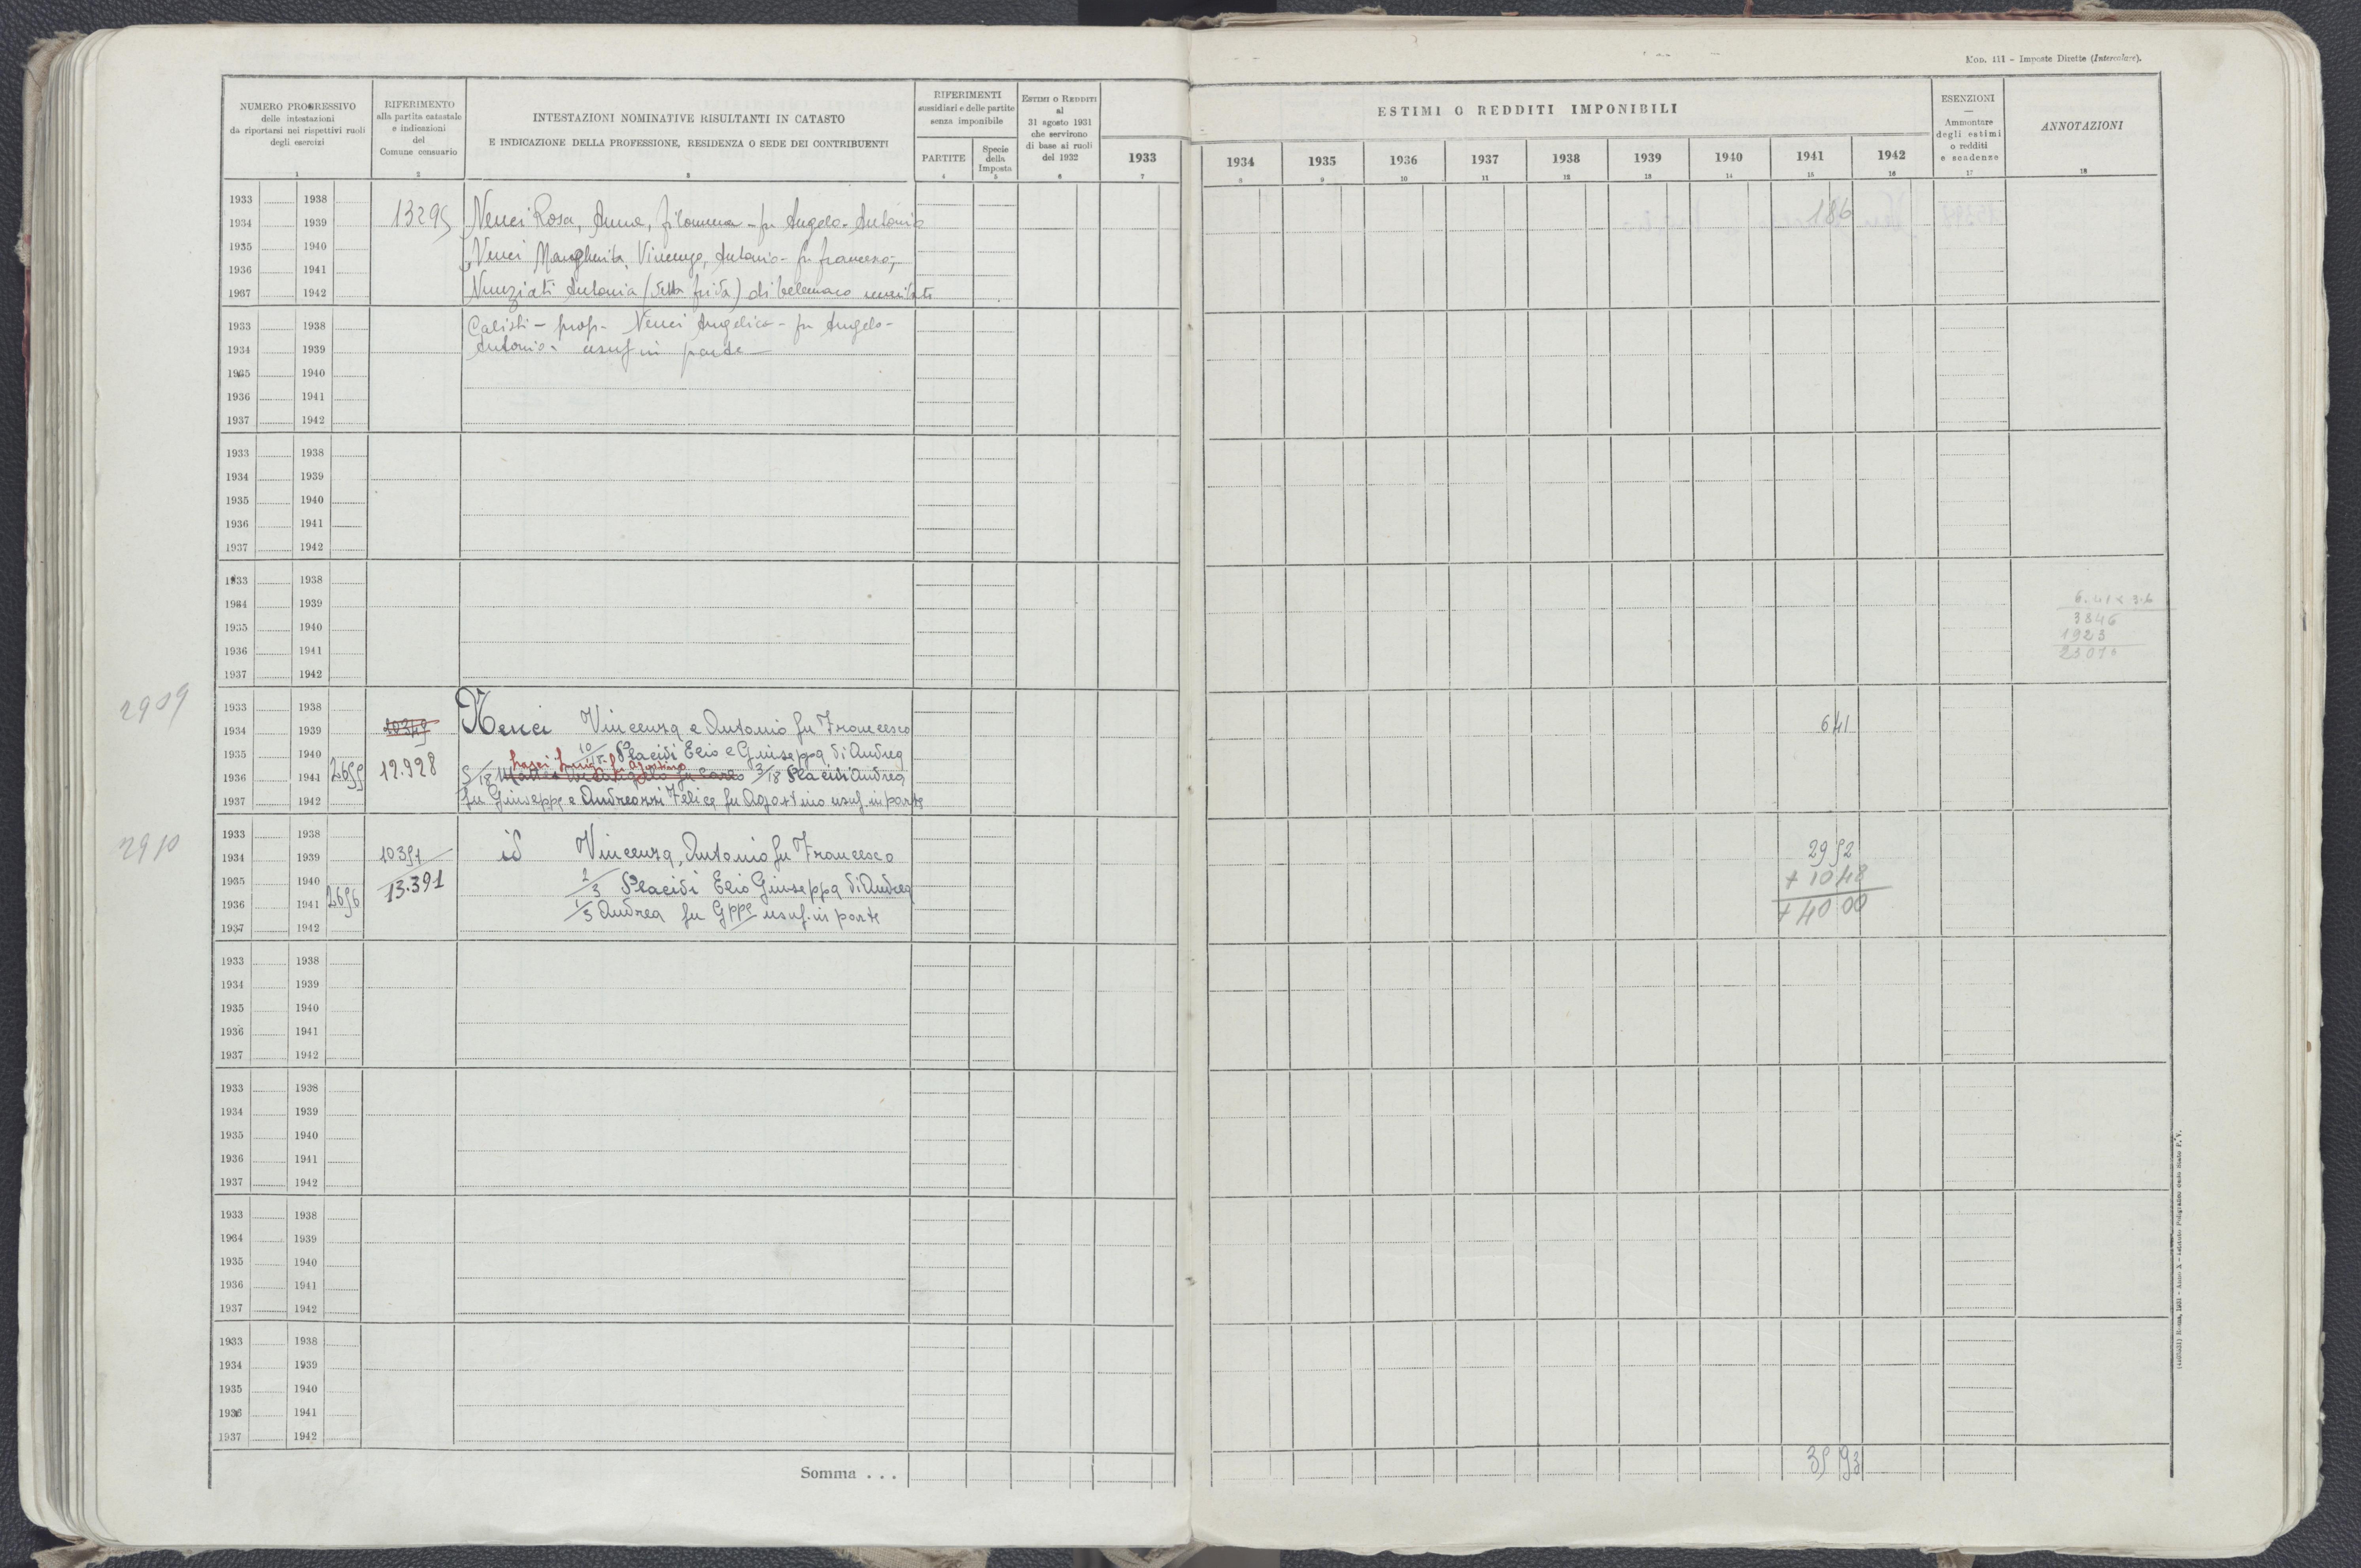 Mod. 111 - Imposte Dirette (Intercalare).
NUMERO PROGRESSIVO
delle intestazioni
da riportarsi nei rispettivi ruoli
degli esercizi
1
RIFERIMENTO
alla partita catastale
e indicazioni
del
Comune censuario
2
INTESTAZIONI NOMINATIVE RISULTANTI IN CATASTO
E INDICAZIONE DELLA PROFESSIONE, RESIDENZA O SEDE DEI CONTRIBUENTI
3
RIFERIMENTI
sussidiari e delle partite
senza imponibile
PARTITE
4
Specie
della
Imposta
5
Estimi o Redditi
al
31 agosto 1931
che servirono
di base ai ruoli
del 1932
6
1933
7
ESTIMI O REDDITI IMPONIBILI
1934 1935 1936 1937 1938 1939 1940 1941 1942
8 9 10 11 12 13 14 15 16
ESENZIONI
—
Ammontare
degli estimi
o redditi
e scadenze
17
ANNOTAZIONI
18
1933 1938
1934 1939 13295 Nenci Rosa, Anna, filomena - fu Angelo-Antonio 186
1935 1940 Nenci Margherita, Vincenza, Antonio - fu francesco;
1936 1941
1937 1942 Nunziati Antonia (detta frida) di
1933 1938 Calisti - prop - Nenci Angelica - fu Angelo-
1934 1939 Antonio - usuf in parte
1935 1940
1936 1941
1937 1942
1933 1938
1934 1939
1935 1940
1936 1941
1937 1942
1933 1938
1934 1939
1935 1940
1936 1941
1937 1942
6.41 x 3.6
3846
1923
2909
1933 1938
1934 1939 10349 Nenci Vincenza e Antonio fu Francesco 641
1935 1940 10/18 Placidi Elio e Giuseppa di Andrea
1936 1941 2655 12.928 5/18 Luigi fu Agostino 3/18 Placidi Andrea
1937 1942 fu Giuseppe e Andreozzi Felice fu Agostino usuf. in parte
2910
1933 1938
1934 1939 10351 id Vincenza, Antonio fu Francesco 2952
1935 1940 13.391 2/3 Placidi Elio Giuseppa di Andrea + 1048
1936 1941 2656 1/3 Andrea fu Gppe usuf. in parte + 4000
1937 1942
1933 1938
1934 1939
1935 1940
1936 1941
1937 1942
1933 1938
1934 1939
1935 1940
1936 1941
1937 1942
1933 1938
1934 1939
1935 1940
1936 1941
1937 1942
1933 1938
1934 1939
1935 1940
1936 1941
1937 1942
Somma . . . 3593
Roma, 1931 - Anno X - Istituto Poligrafico dello Stato P. V.